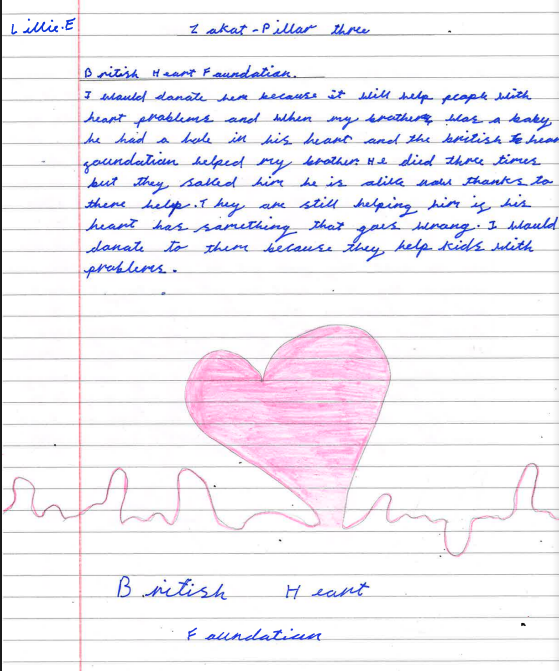 Lillie.E
Zakat-Pillar three
British Heart Foundation.
I would donate here because it will help people with
heart problems and when my brother, was a baby,
he had a hole in his heart and the british to hear
foundation helped my brother. He died three times
but they saved him he is alive now thanks to
there help. They are still helping him if his
heart has something that goes wrong. I would
donate to them because they help kids with
problems.
British Heart
Foundation